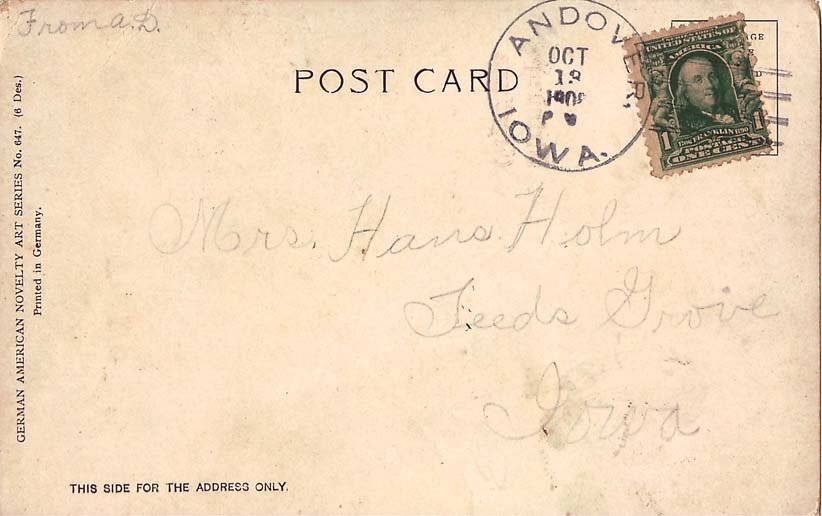 From A. D.
POST CARD
ANDOVER,
OCT
IOWA.
UNITED STATES OF
AMERICA
FRANKLIN
POSTAGE
1 ONE CENT 1
GERMAN AMERICAN NOVELTY ART SERIES No. 647. (6 Des.)
Printed in Germany.
Mrs. Hans Holm
Teeds Grove
Iowa
THIS SIDE FOR THE ADDRESS ONLY.